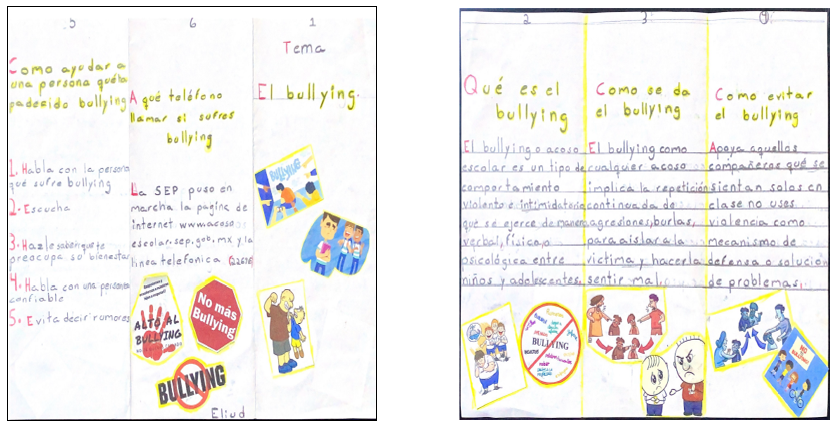 5
Como ayudar a
una persona que ha
padecido bullying
1. Habla con la persona
que sufre bullying
2. Escucha
3. Hazle saber que te
preocupa su bienestar
4. Habla con una persona
confiable
5. Evita decir rumores
6
A qué teléfono
llamar si sufres
bullying
La SEP puso en
marcha la pagina de
internet www.acoso
escolar.sep.gob.mx y la
linea telefonica
ALTO AL
BULLYING
No más
Bullying
BULLYING
Eliud
1
Tema
El bullying.
2
Qué es el
bullying
El bullying o acoso
escolar es un tipo de
comportamiento
violento e intimidatorio
qué se ejerce de manera
verbal, física, o
psicológica entre
niños y adolescentes.
BULLYING
3
Como se da
el bullying
El bullying como
cualquier acoso
implica la repetición
continuada de
agresiones, burlas,
para aislar a la
victima y hacerla
sentir mal.
4
Como evitar
el bullying
Apoya aquellos
compañeros qué se
sientan solos en
clase no uses
violencia como
mecanismo de
defensa o solución
de problemas.